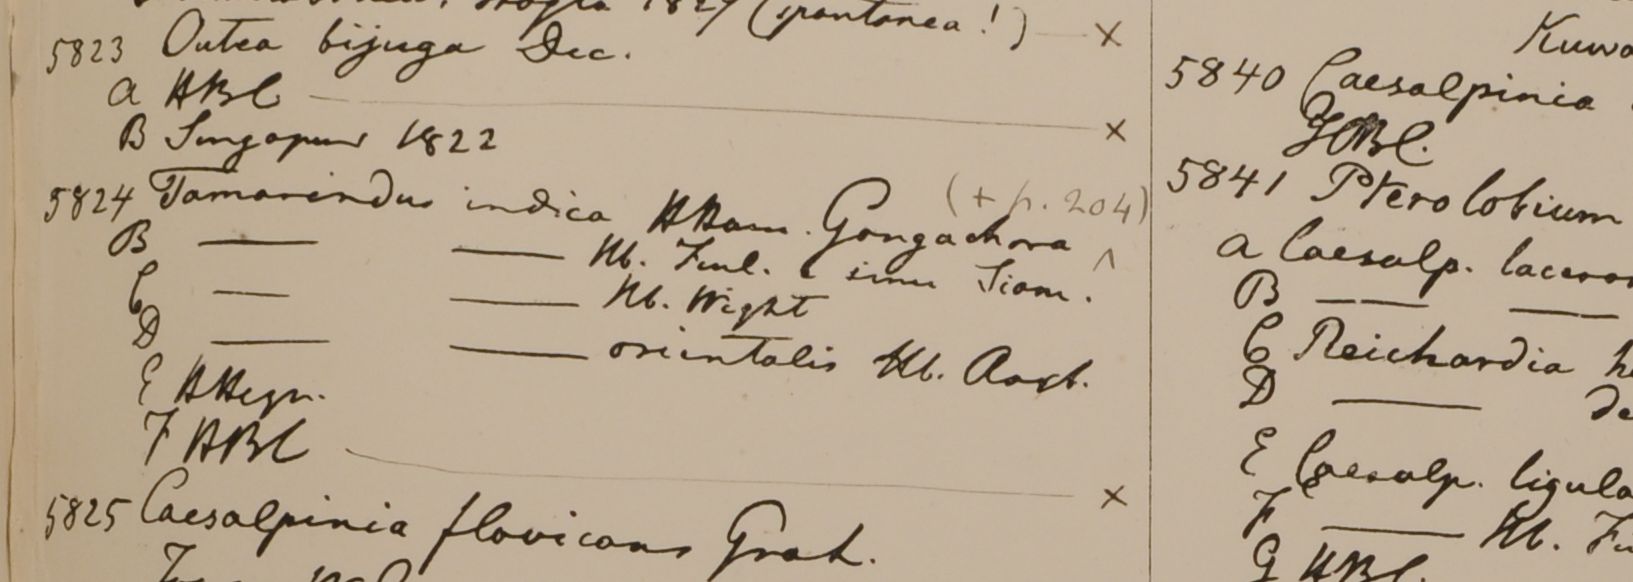 1829 (spontanea!) — ×
5823 Outea bijuga Dec.
a HBC — ×
B Singapur 1822
5824 Tamarindus indica HHam. Gongachora (+ p. 204)
B — — Hb. Finl. e sinu Siam. ^
C — — Hb. Wight
D — — orientalis Hb. Roxb.
E HHeyn.
F HBC — ×
5825 Caesalpinia flavicans Grah.
5840 Caesalpinia
HBC.
5841 Pterolobium
a Caesalp.
B — —
C Reichardia
D —
E Caesalp.
F — Hb.
G HBC.